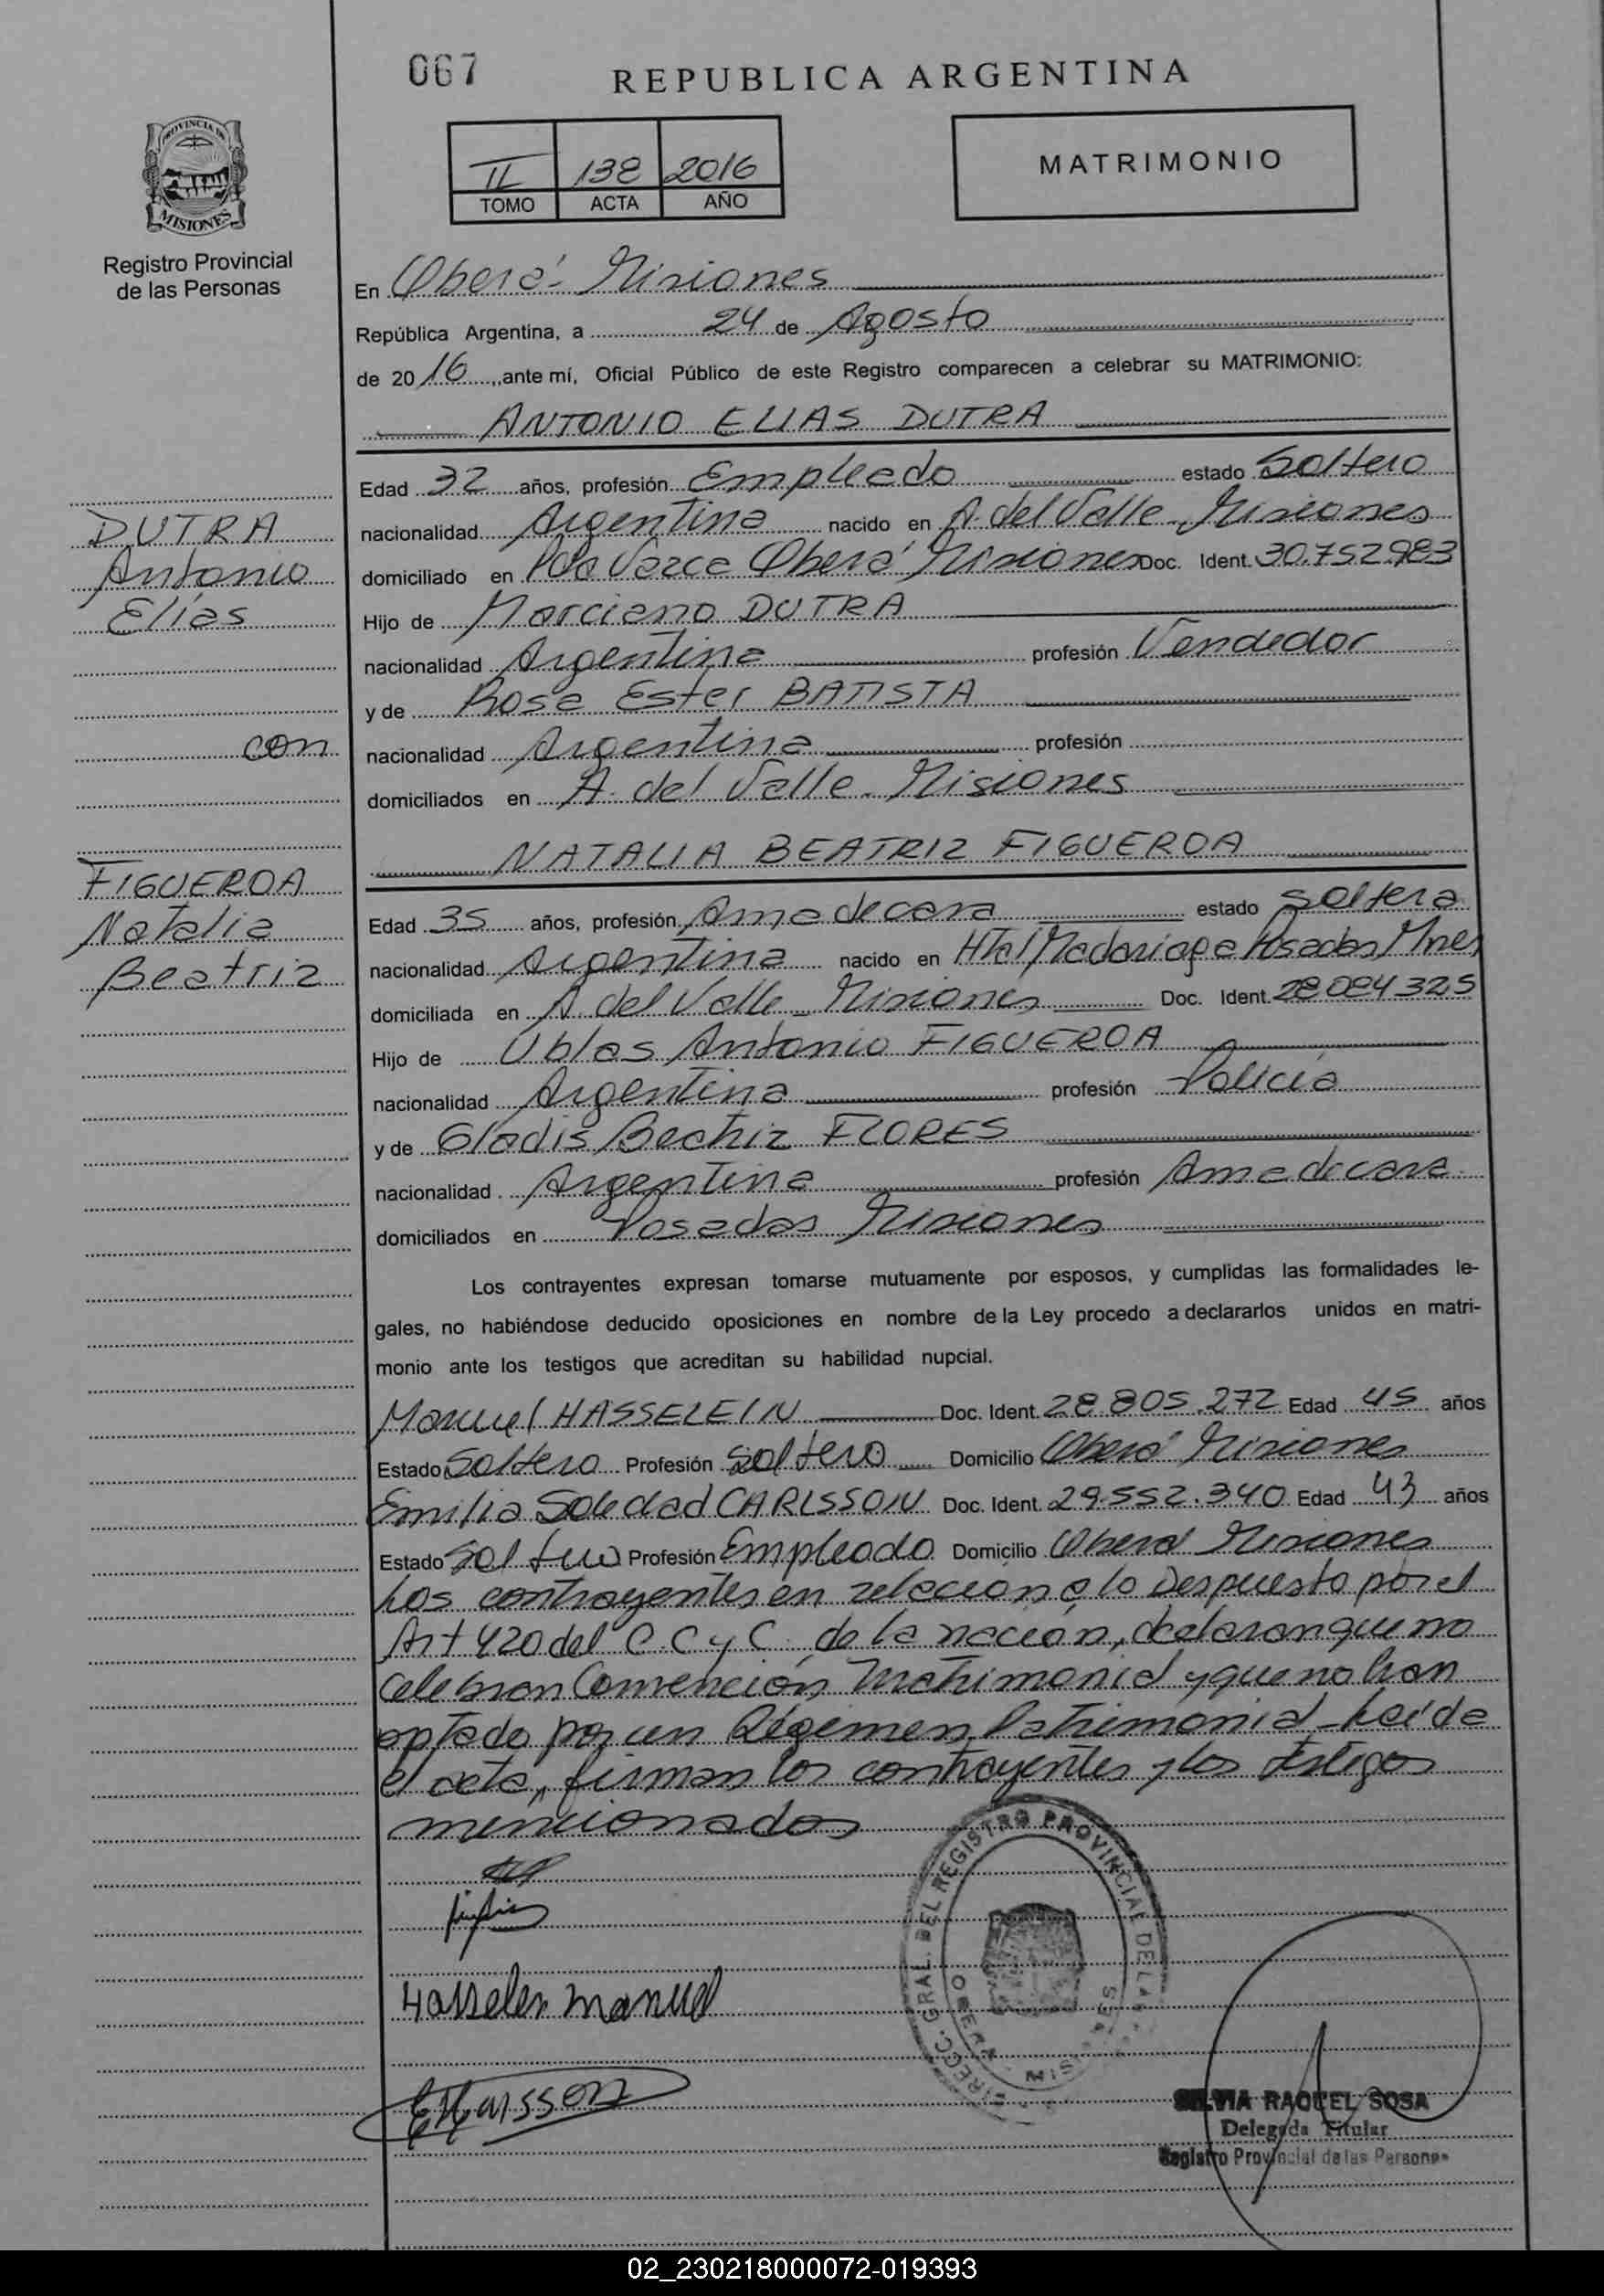 067
REPUBLICA ARGENTINA
PROVINCIA DE
MISIONES
II 138 2016
TOMO ACTA AÑO
MATRIMONIO
Registro Provincial
de las Personas
En Oberá - Misiones
República Argentina, a 24 de Agosto
de 2016, ante mí, Oficial Público de este Registro comparecen a celebrar su MATRIMONIO:
ANTONIO ELIAS DUTRA
DUTRA
Antonio
Elías
con
FIGUEROA
Natalia
Beatriz
Edad 32 años, profesión Empleado estado Soltero
nacionalidad Argentina nacido en A. del Valle - Misiones
domiciliado en Oberá Misiones Doc. Ident. 30.752.983
Hijo de Marciano DUTRA
nacionalidad Argentina profesión Vendedor
y de Rosa Ester BATISTA
nacionalidad Argentina profesión
domiciliados en A. del Valle - Misiones
NATALIA BEATRIZ FIGUEROA
Edad 35 años, profesión Ama de casa estado Soltera
nacionalidad Argentina nacido en Htal Madariaga Posadas Mnes
domiciliada en A. del Valle - Misiones Doc. Ident. 28.084.325
Hijo de Antonio FIGUEROA
nacionalidad Argentina profesión Policía
y de Gladis Beatriz FLORES
nacionalidad Argentina profesión Ama de casa
domiciliados en Posadas Misiones
Los contrayentes expresan tomarse mutuamente por esposos, y cumplidas las formalidades le-
gales, no habiéndose deducido oposiciones en nombre de la Ley procedo a declararlos unidos en matri-
monio ante los testigos que acreditan su habilidad nupcial.
Manuel HASSELEIN Doc. Ident. 28.805.272 Edad 45 años
Estado Soltero Profesión Soltero Domicilio Oberá Misiones
Emilia Soledad CARLSSON Doc. Ident. 29.552.340 Edad 43 años
Estado Soltero Profesión Empleado Domicilio Oberá Misiones
Los contrayentes en relación a lo Despuesto por el
Art 420 del C.C y C. de la nación, declaran que no
celebran Convención Matrimonial y que no han
optado por un Régimen Patrimonial - Leída
el acta, firman los contrayentes y los testigos
mencionados
Hasselen manuel
DIRECC. GRAL. DEL REGISTRO PROVINCIAL DE LAS
SILVIA RAQUEL SOSA
Delegada Titular
Registro Provincial de las Personas
02_230218000072-019393